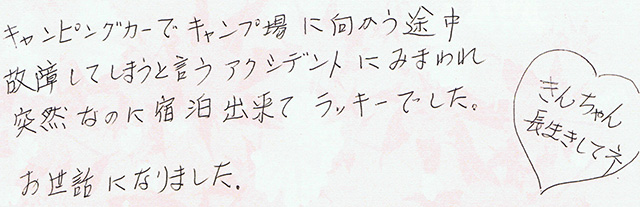 キャンピングカーでキャンプ場に向かう途中
故障してしまうと言うアクシデントにみまわれ
突然なのに宿泊出来てラッキーでした。
お世話になりました。
きんちゃん
長生きしてネ